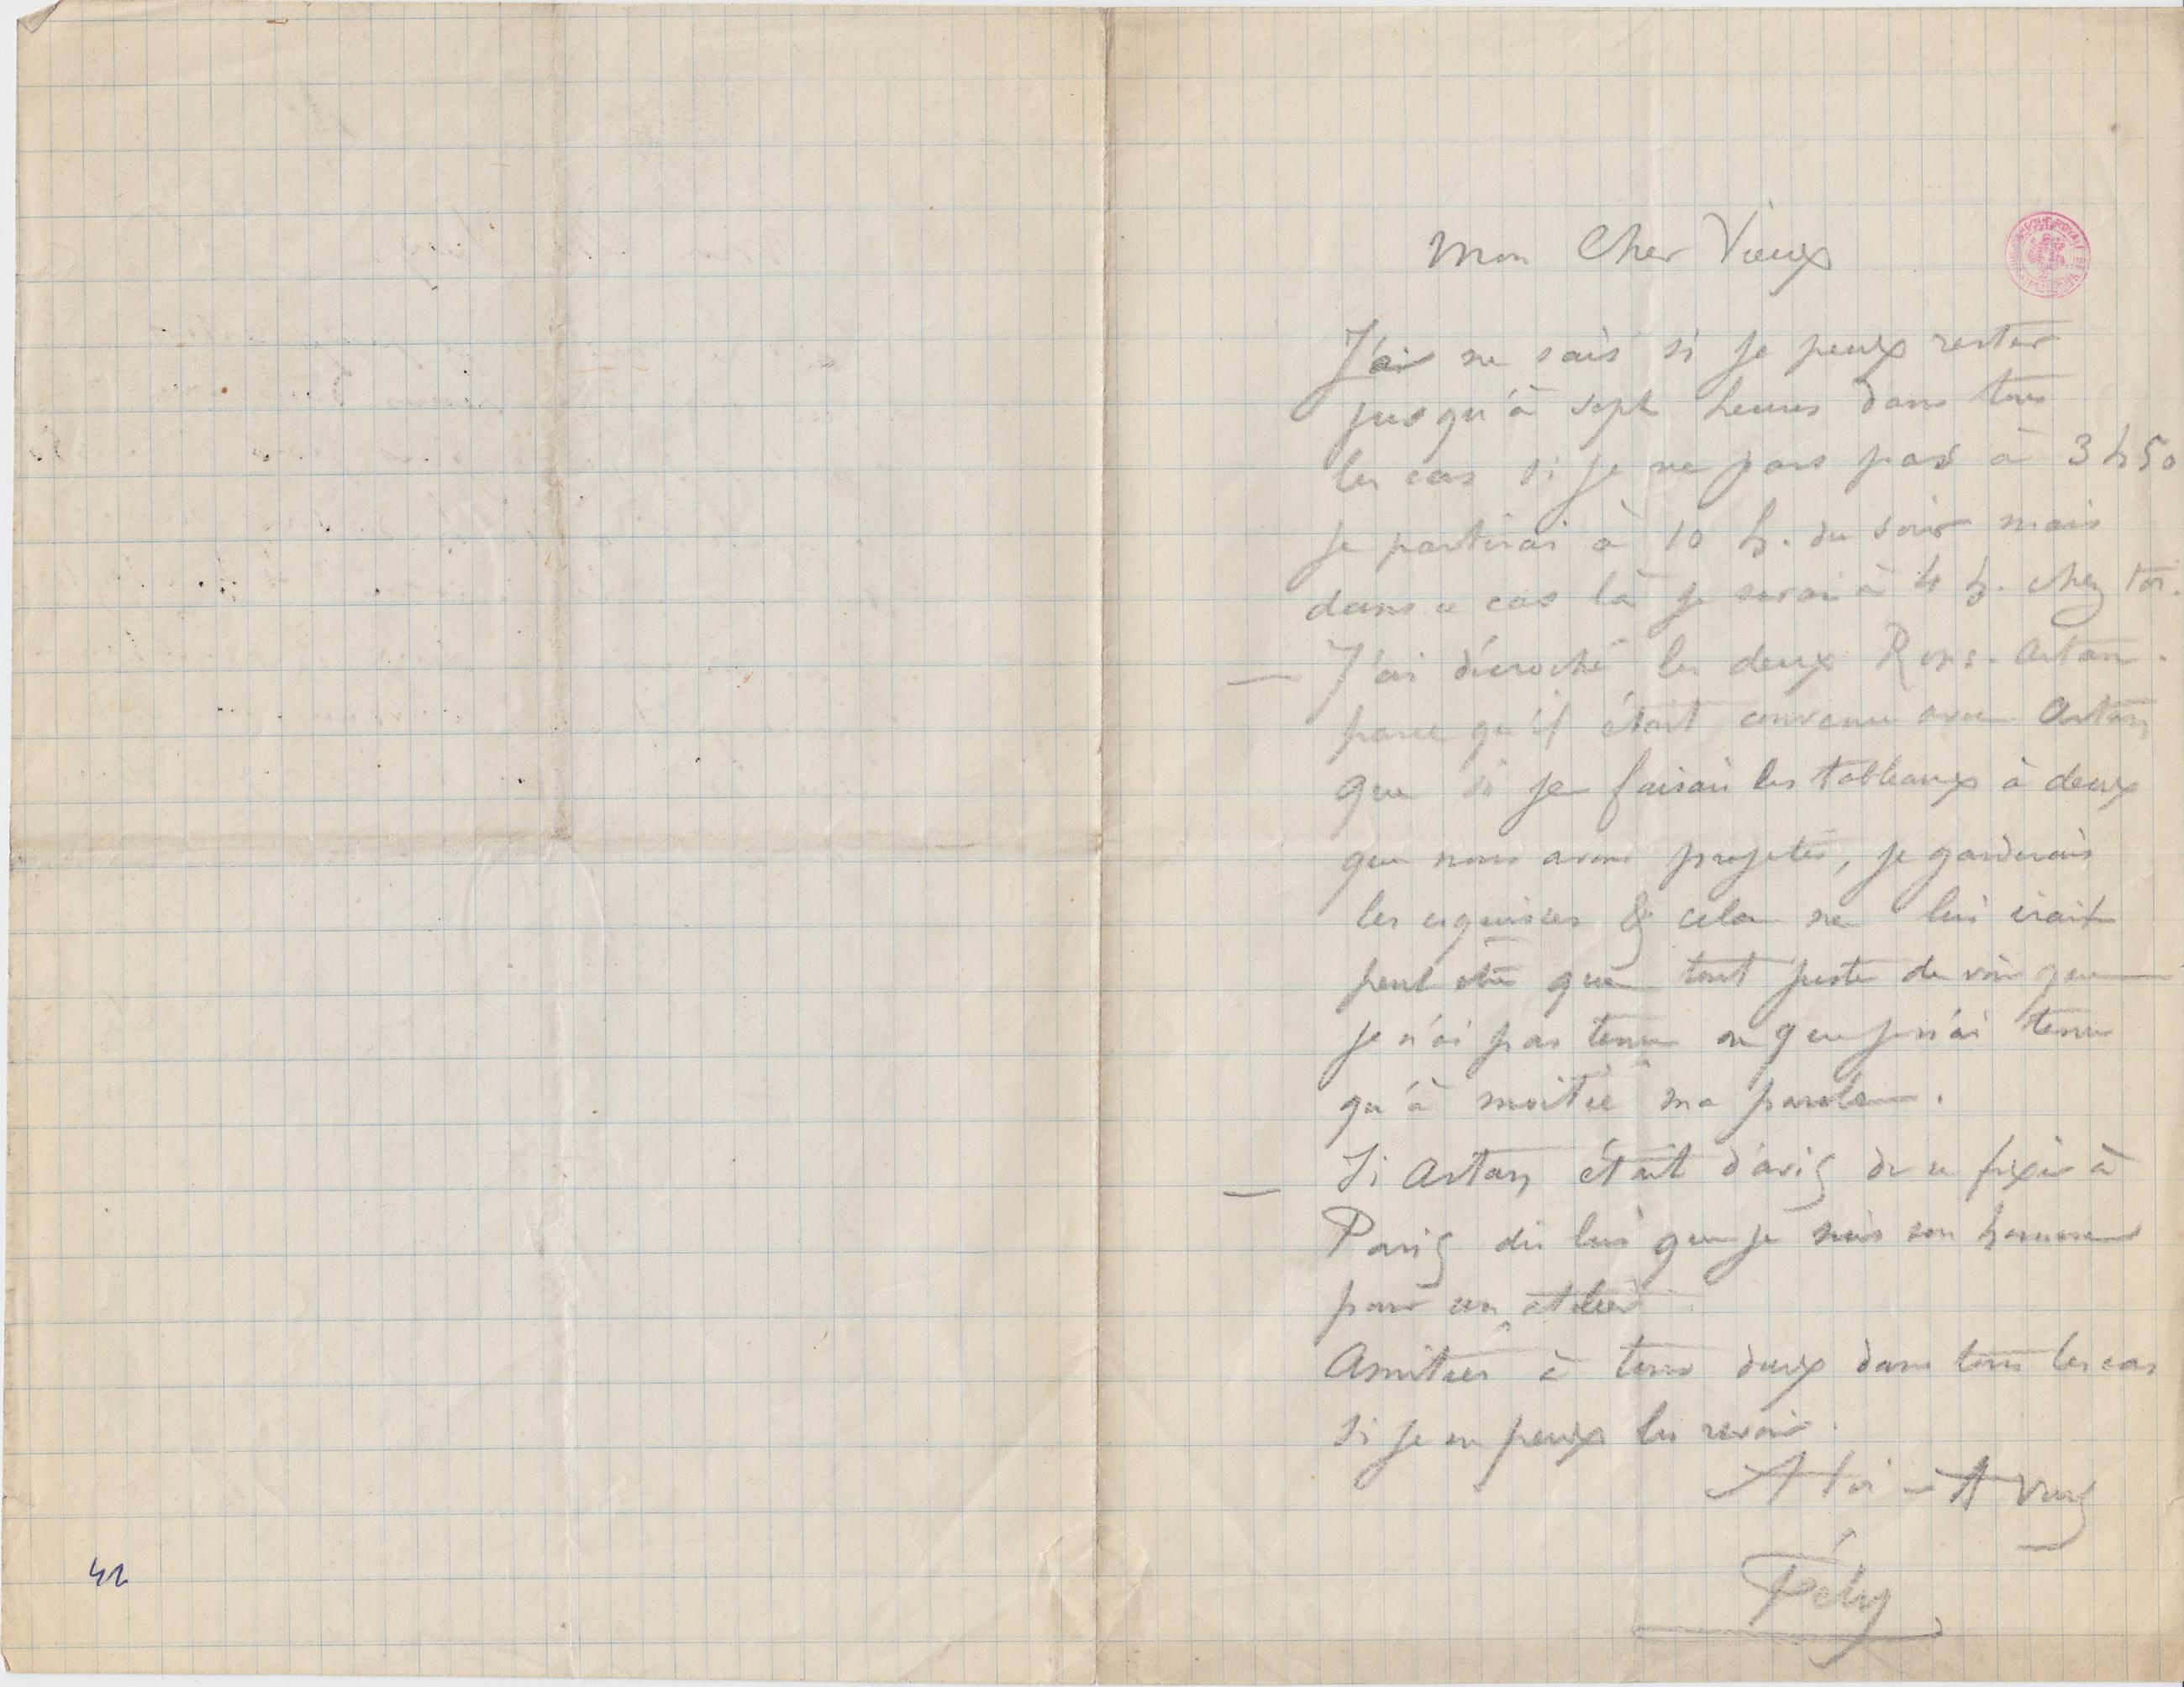 Mon Cher Vieux
J'ai ne sais si je peux rester
jusqu'à sept heures dans tous
les cas si je ne pars pas à 3 h 50
je partirai à 10 h. du soir mais
dans ce cas là je serai à 4 h. chez toi.
— J'ai décroché les deux Rops-Artan.
parce qu'il était convenu avec Artan
que si je faisais les tableaux à deux
que nous avons projetés, je garderais
les esquisses & cela ne lui irait
peut être que tout juste de voir que
je n'ai pas tenu ou que je n'ai tenu
qu'à moitié ma parole.
— Si Artan était d'avis de se fixer à
Paris dis lui que je suis son homme
pour un atelier.
Amitiés à tous deux dans tous les cas
si je ne peux les revoir.
A toi – A Vous
Fély
42